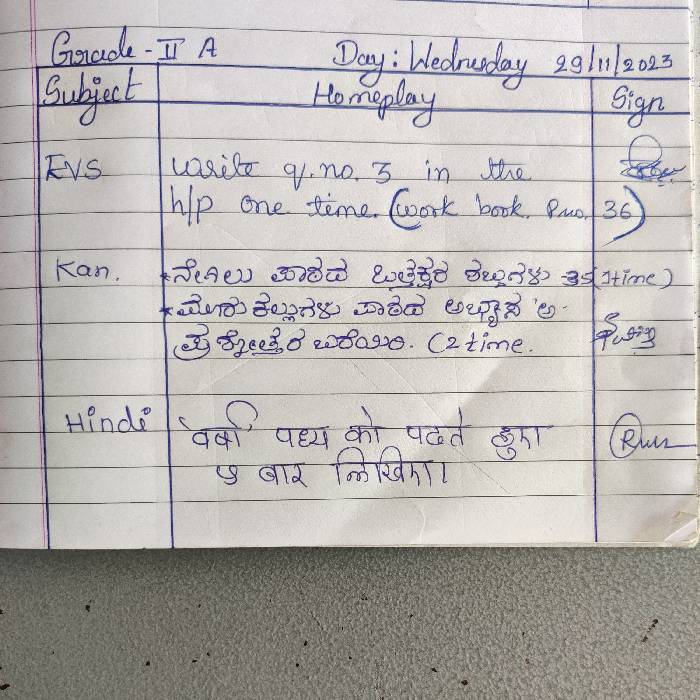 Grade - II A Day: Wednesday 29/11/2023
Subject Homeplay Sign
EVS write q.no. 3 in the
h/p one time. (work book. P.no. 36)
Kan. * ನೇಗಿಲು ಪಾಠದ ಒತ್ತಕ್ಷರ ಶಬ್ದಗಳು 35 (1time)
* ಮೂರು ಕಲ್ಲುಗಳು ಪಾಠದ ಅಭ್ಯಾಸ 'ಅ'
ಪ್ರಶ್ನೋತ್ತರ ಬರೆಯಿರಿ. (2 time.
Hindi 'वर्षा' पध्य को पढते हुए
५ बार लिखिए।